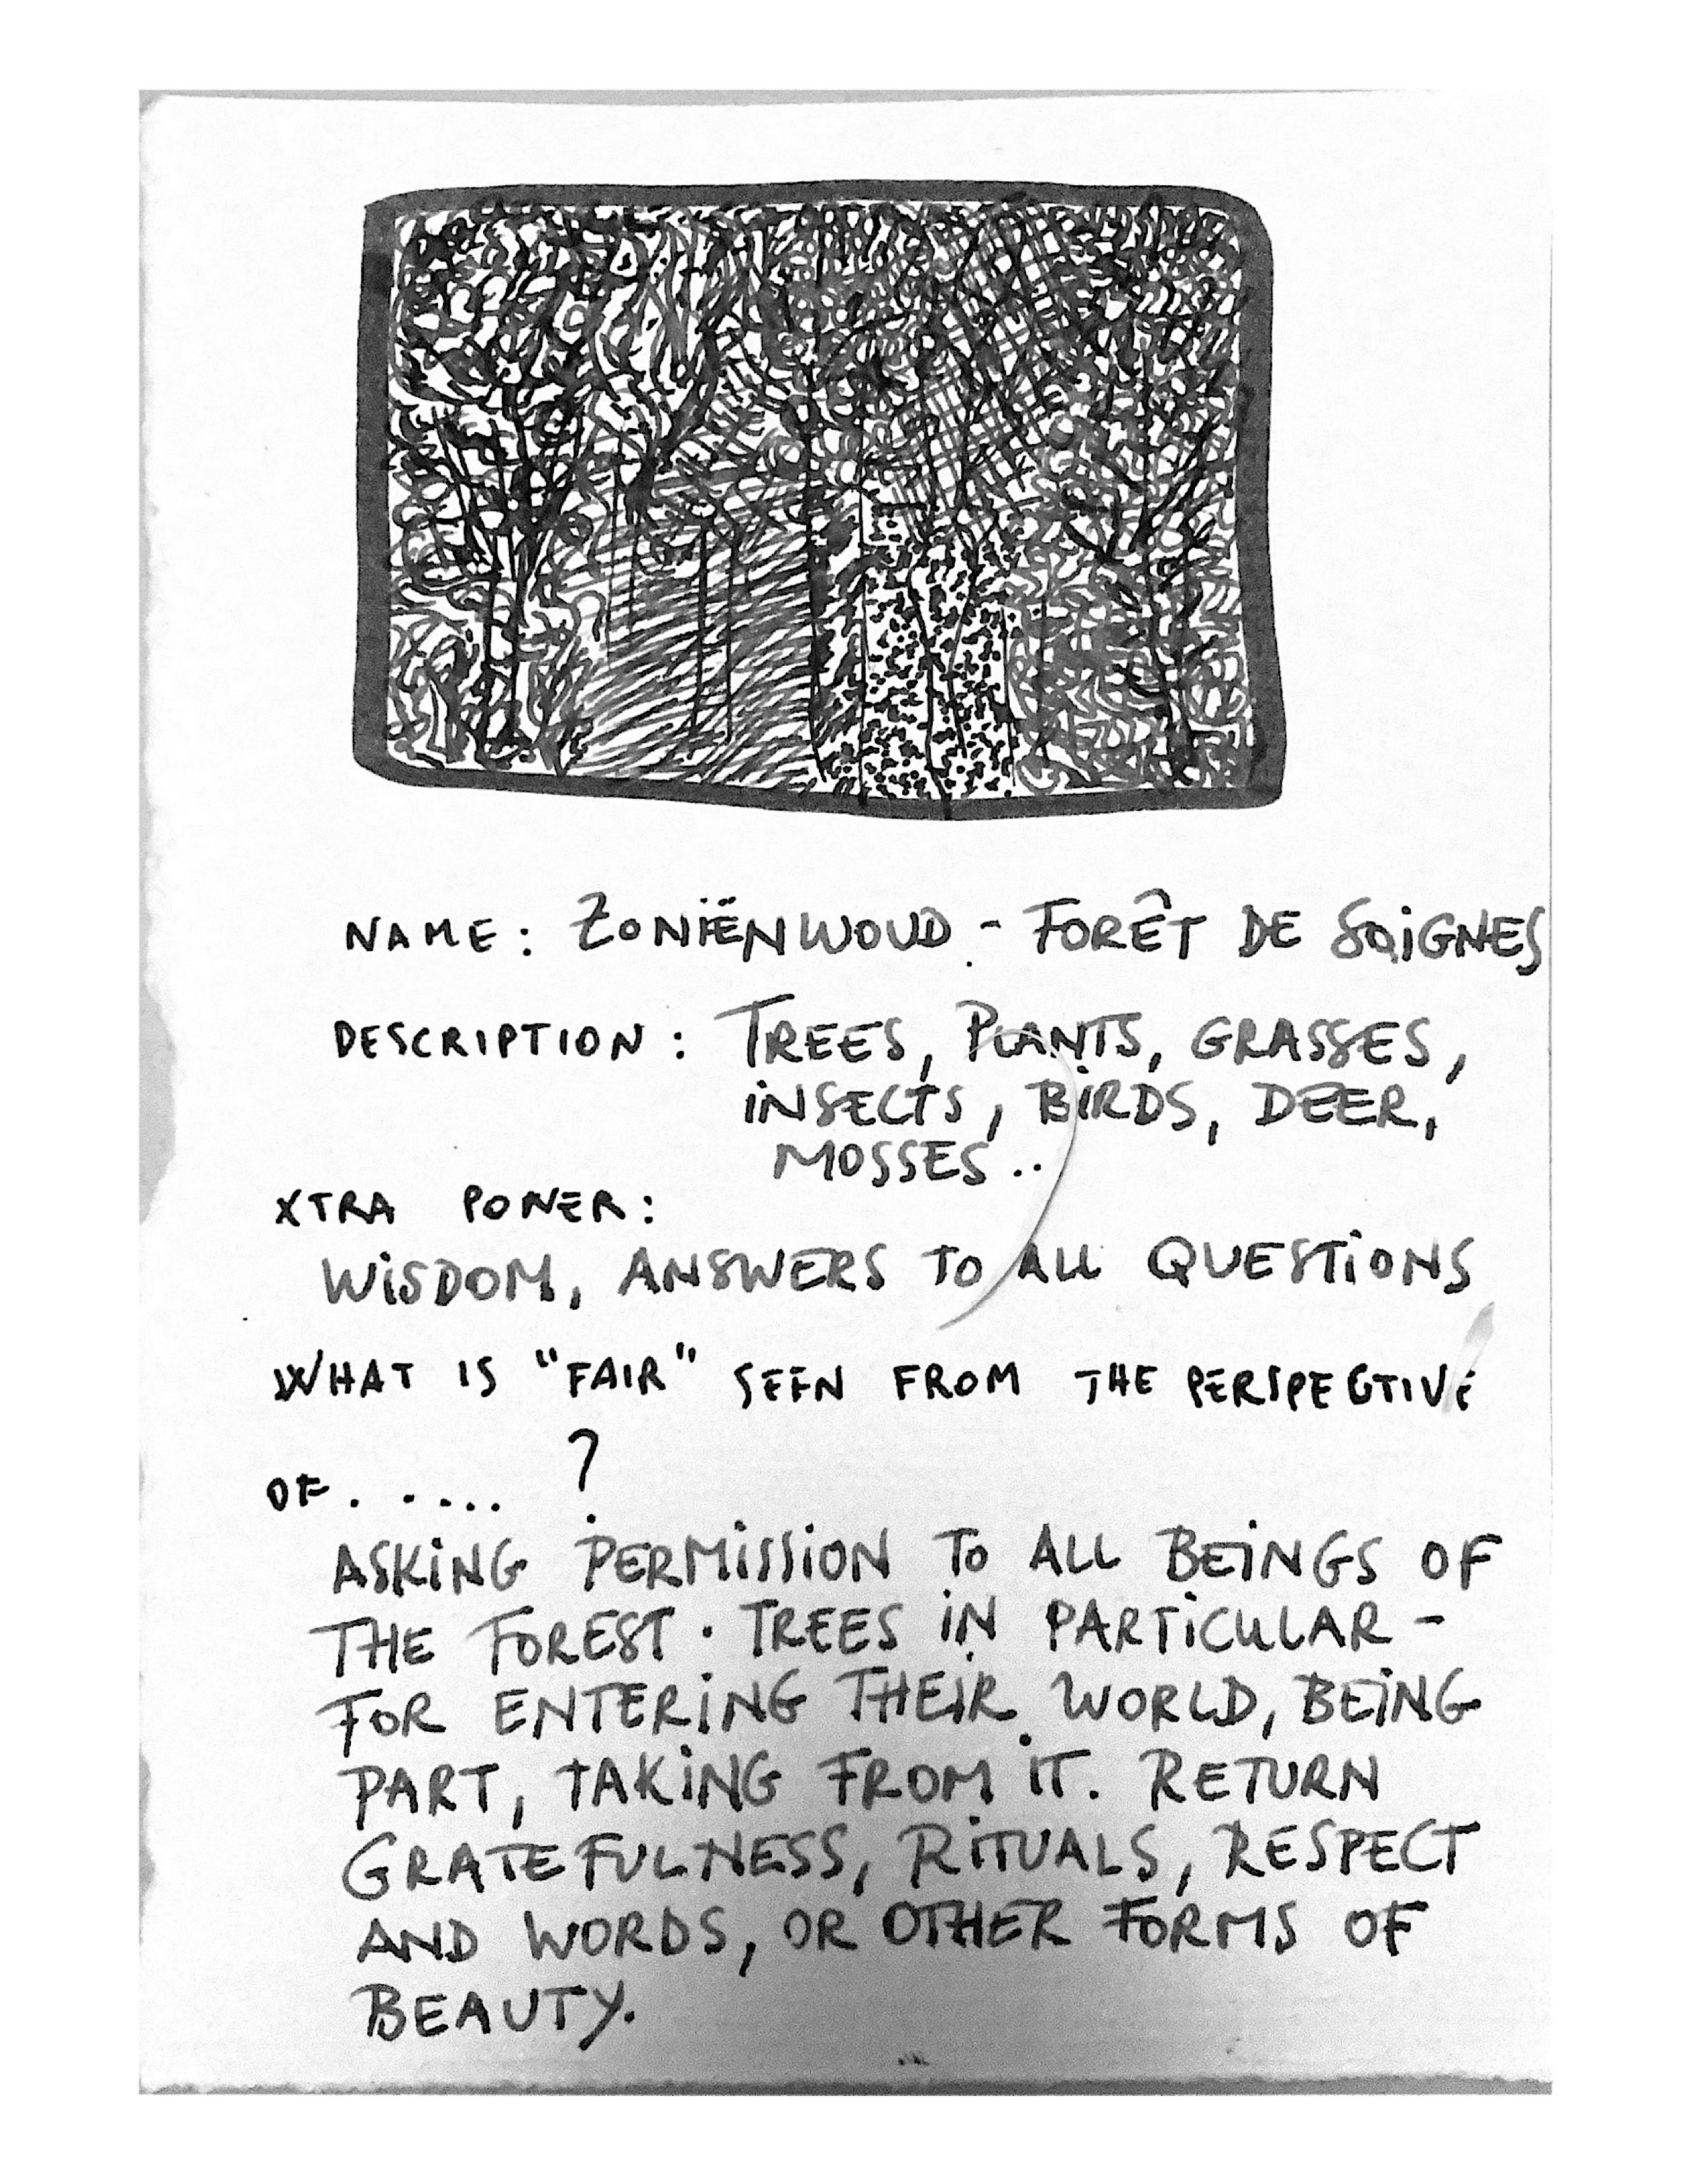 NAME: ZONIËNWOUD - FORÊT DE SOIGNES
DESCRIPTION: TREES, PLANTS, GRASSES,
INSECTS, BIRDS, DEER,
MOSSES..
XTRA POWER:
WISDOM, ANSWERS TO ALL QUESTIONS
WHAT IS "FAIR" SEEN FROM THE PERSPECTIVE
OF...... ?
ASKING PERMISSION TO ALL BEINGS OF
THE FOREST · TREES IN PARTICULAR -
FOR ENTERING THEIR WORLD, BEING
PART, TAKING FROM IT. RETURN
GRATEFULNESS, RITUALS, RESPECT
AND WORDS, OR OTHER FORMS OF
BEAUTY.